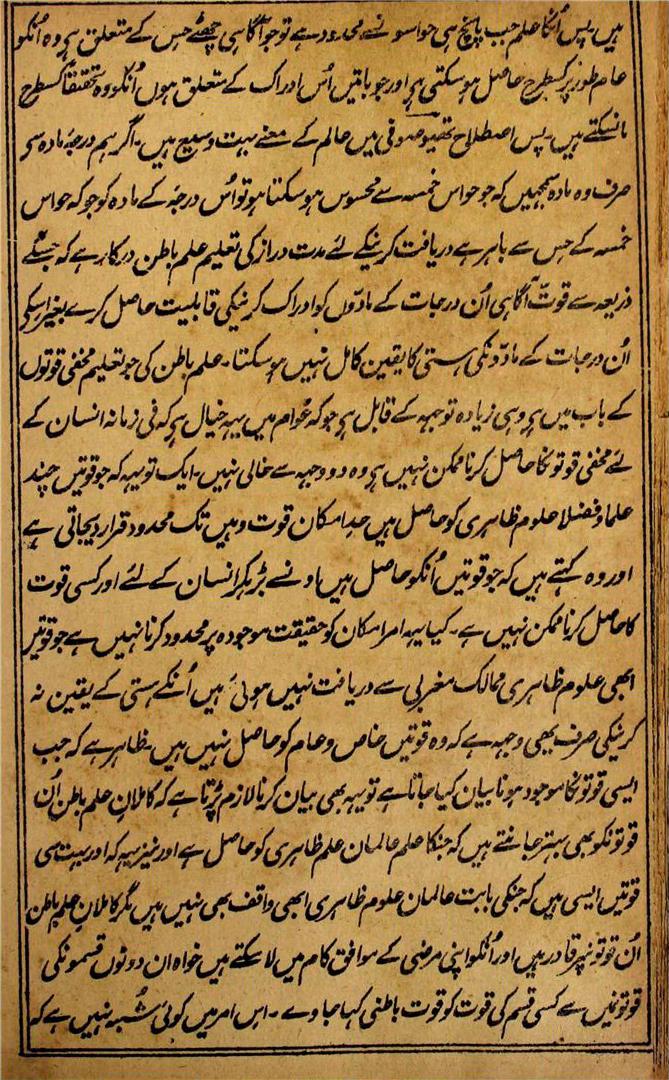 ہیں۔ پس اُنکا علم جب پانچ ہی حواسو نسے محدود ہے تو جو آگاہی چھٹے حس کے متعلق ہے وہ اُنکو
عام طور پر کسطرح حاصل ہو سکتی ہے اور جو باتیں اُس ادراک کے متعلق ہوں اُنکو وہ تحقیقاً کسطرح
مانسکتے ہیں۔ پس اصطلاح تھیوصوفی میں عالم کے معنے بہت وسیع ہیں۔ اگر ہم درجۂ مادہ سے
صرف وہ مادہ سمجہیں کہ جو حواس خمسہ سے محسوس ہو سکتا ہو تو اُس درجہ کے مادہ کو جو کہ حواس
خمسہ کے حس سے باہر ہے دریافت کرنیکے لئے مدت دراز کی تعلیم علم باطن درکار ہے کہ جسکے
ذریعہ سے قوتِ آگاہی اُن درجات کے مادّوں کو ادراک کرنیکی قابلیت حاصل کرے بغیر اسکے
اُن درجات کے مادّونکی ہستی کا یقین کامل نہیں ہو سکتا۔ علم باطن کی جو تعلیم مخفی قوتوں
کے باب میں ہے وہی زیادہ توجہہ کے قابل ہے جو کہ عوام میں یہہ خیال ہے کہ فی زمانہ انسان کے
لئے مخفی قوتونکا حاصل کرنا ممکن نہیں ہے وہ دو وجہہ سے خالی نہیں۔ ایک تو یہہ کہ جو قوتیں چند
علما و فضلا علوم ظاہری کو حاصل ہیں حدِ امکان قوت وہیں تک محدود قرار دیجاتی ہے
اور وہ کہتے ہیں کہ جو قوتیں اُنکو حاصل ہیں اونسے بڑہکر انسان کے لئے اور کسی قوت
کا حاصل کرنا ممکن نہیں ہے۔ کیا یہہ امر امکان کو حقیقت موجودہ پر محدود کرنا نہیں ہے جو قوتیں
ابھی علوم ظاہری ممالک مغربی سے دریافت نہیں ہوئی ہیں اُنکے ہستی کے یقین نہ
کرنیکی صرف یھی وجہہ ہے کہ وہ قوتیں خاص و عام کو حاصل نہیں ہیں۔ ظاہر ہے کہ جب
ایسی قوتونکا موجود ہونا بیان کیا جاتا ہے تو یہہ بھی بیان کرنا لازم پڑتا ہے کہ کاملانِ علم باطن اُن
قوتونکو بھی بہتر جانتے ہیں کہ جنکا علم عالمان علم ظاہری کو حاصل ہے اور نیز یہہ کہ اور بہت سی
قوتیں ایسی ہیں کہ جنکی بابت عالمان علوم ظاہری ابھی واقف بھی نہیں ہیں مگر کاملانِ علم باطن
اُن قوتونپر قادر ہیں اور اُنکو اپنی مرضی کے موافق کام میں لا سکتے ہیں خواہ ان دونوں قسمونکی
قوتونمیں سے کسی قسم کی قوت کو قوت باطنی کہا جاوے۔ اس امر میں کوئی شُبہ نہیں ہے کہ